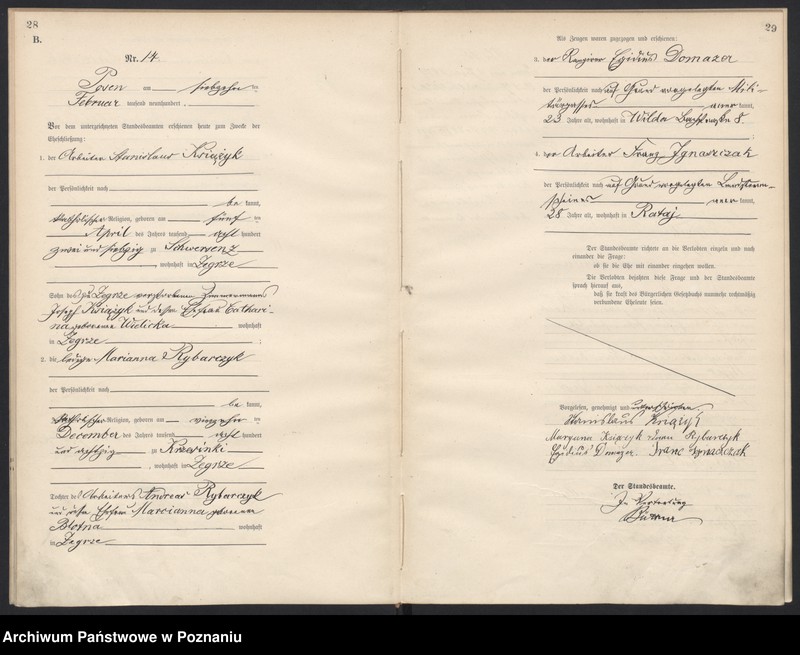 28
B.
Nr. 14.
Posen am siebzehn ten
Februar tausend neunhundert
Vor dem unterzeichneten Standesbeamten erschienen heute zum Zwecke der
Eheschließung:
1. der Arbeiter Stanislaus Książyk
der Persönlichkeit nach
be kannt,
katholischer Religion, geboren am fünf ten
April des Jahres tausend acht hundert
zwei und siebzig zu Schwersenz
, wohnhaft in Zegrze
Sohn des zu Zegrze verstorbenen Zimmermanns
Joseph Książyk und dessen Ehefrau Cathari-
na geborenen Wielicka wohnhaft
in Zegrze ;
2. die ledige Marianna Rybarczyk
der Persönlichkeit nach
be kannt,
katholischer Religion, geboren am vierzehn ten
December des Jahres tausend acht hundert
und achtzig zu Krzesinki
, wohnhaft in Zegrze
Tochter des Arbeiters Andreas Rybarczyk
und dessen Ehefrau Marianna geborenen
Błotna wohnhaft
in Zegrze
29
Als Zeugen waren zugezogen und erschienen:
3. der Rangirer Egidius Domazer
der Persönlichkeit nach auf Grund vorgelegten Mili-
tärpasses aner kannt,
23 Jahre alt, wohnhaft in Wilda 8.
4. der Arbeiter Franz Ignaszczak
der Persönlichkeit nach auf Grund vorgelegten Landsturm-
scheines aner kannt,
28 Jahre alt, wohnhaft in Rataj
Der Standesbeamte richtete an die Verlobten einzeln und nach
einander die Frage:
ob sie die Ehe mit einander eingehen wollen.
Die Verlobten bejahten diese Frage und der Standesbeamte
sprach hierauf aus,
daß sie kraft des Bürgerlichen Gesetzbuchs nunmehr rechtmäßig
verbundene Eheleute seien.
Vorgelesen, genehmigt und unterschrieben
Stanislaus
Maryana Rybarczyk
Egidius Domazer. Franc Ignaszczak
Der Standesbeamte.
In Vertretung
Archiwum Państwowe w Poznaniu